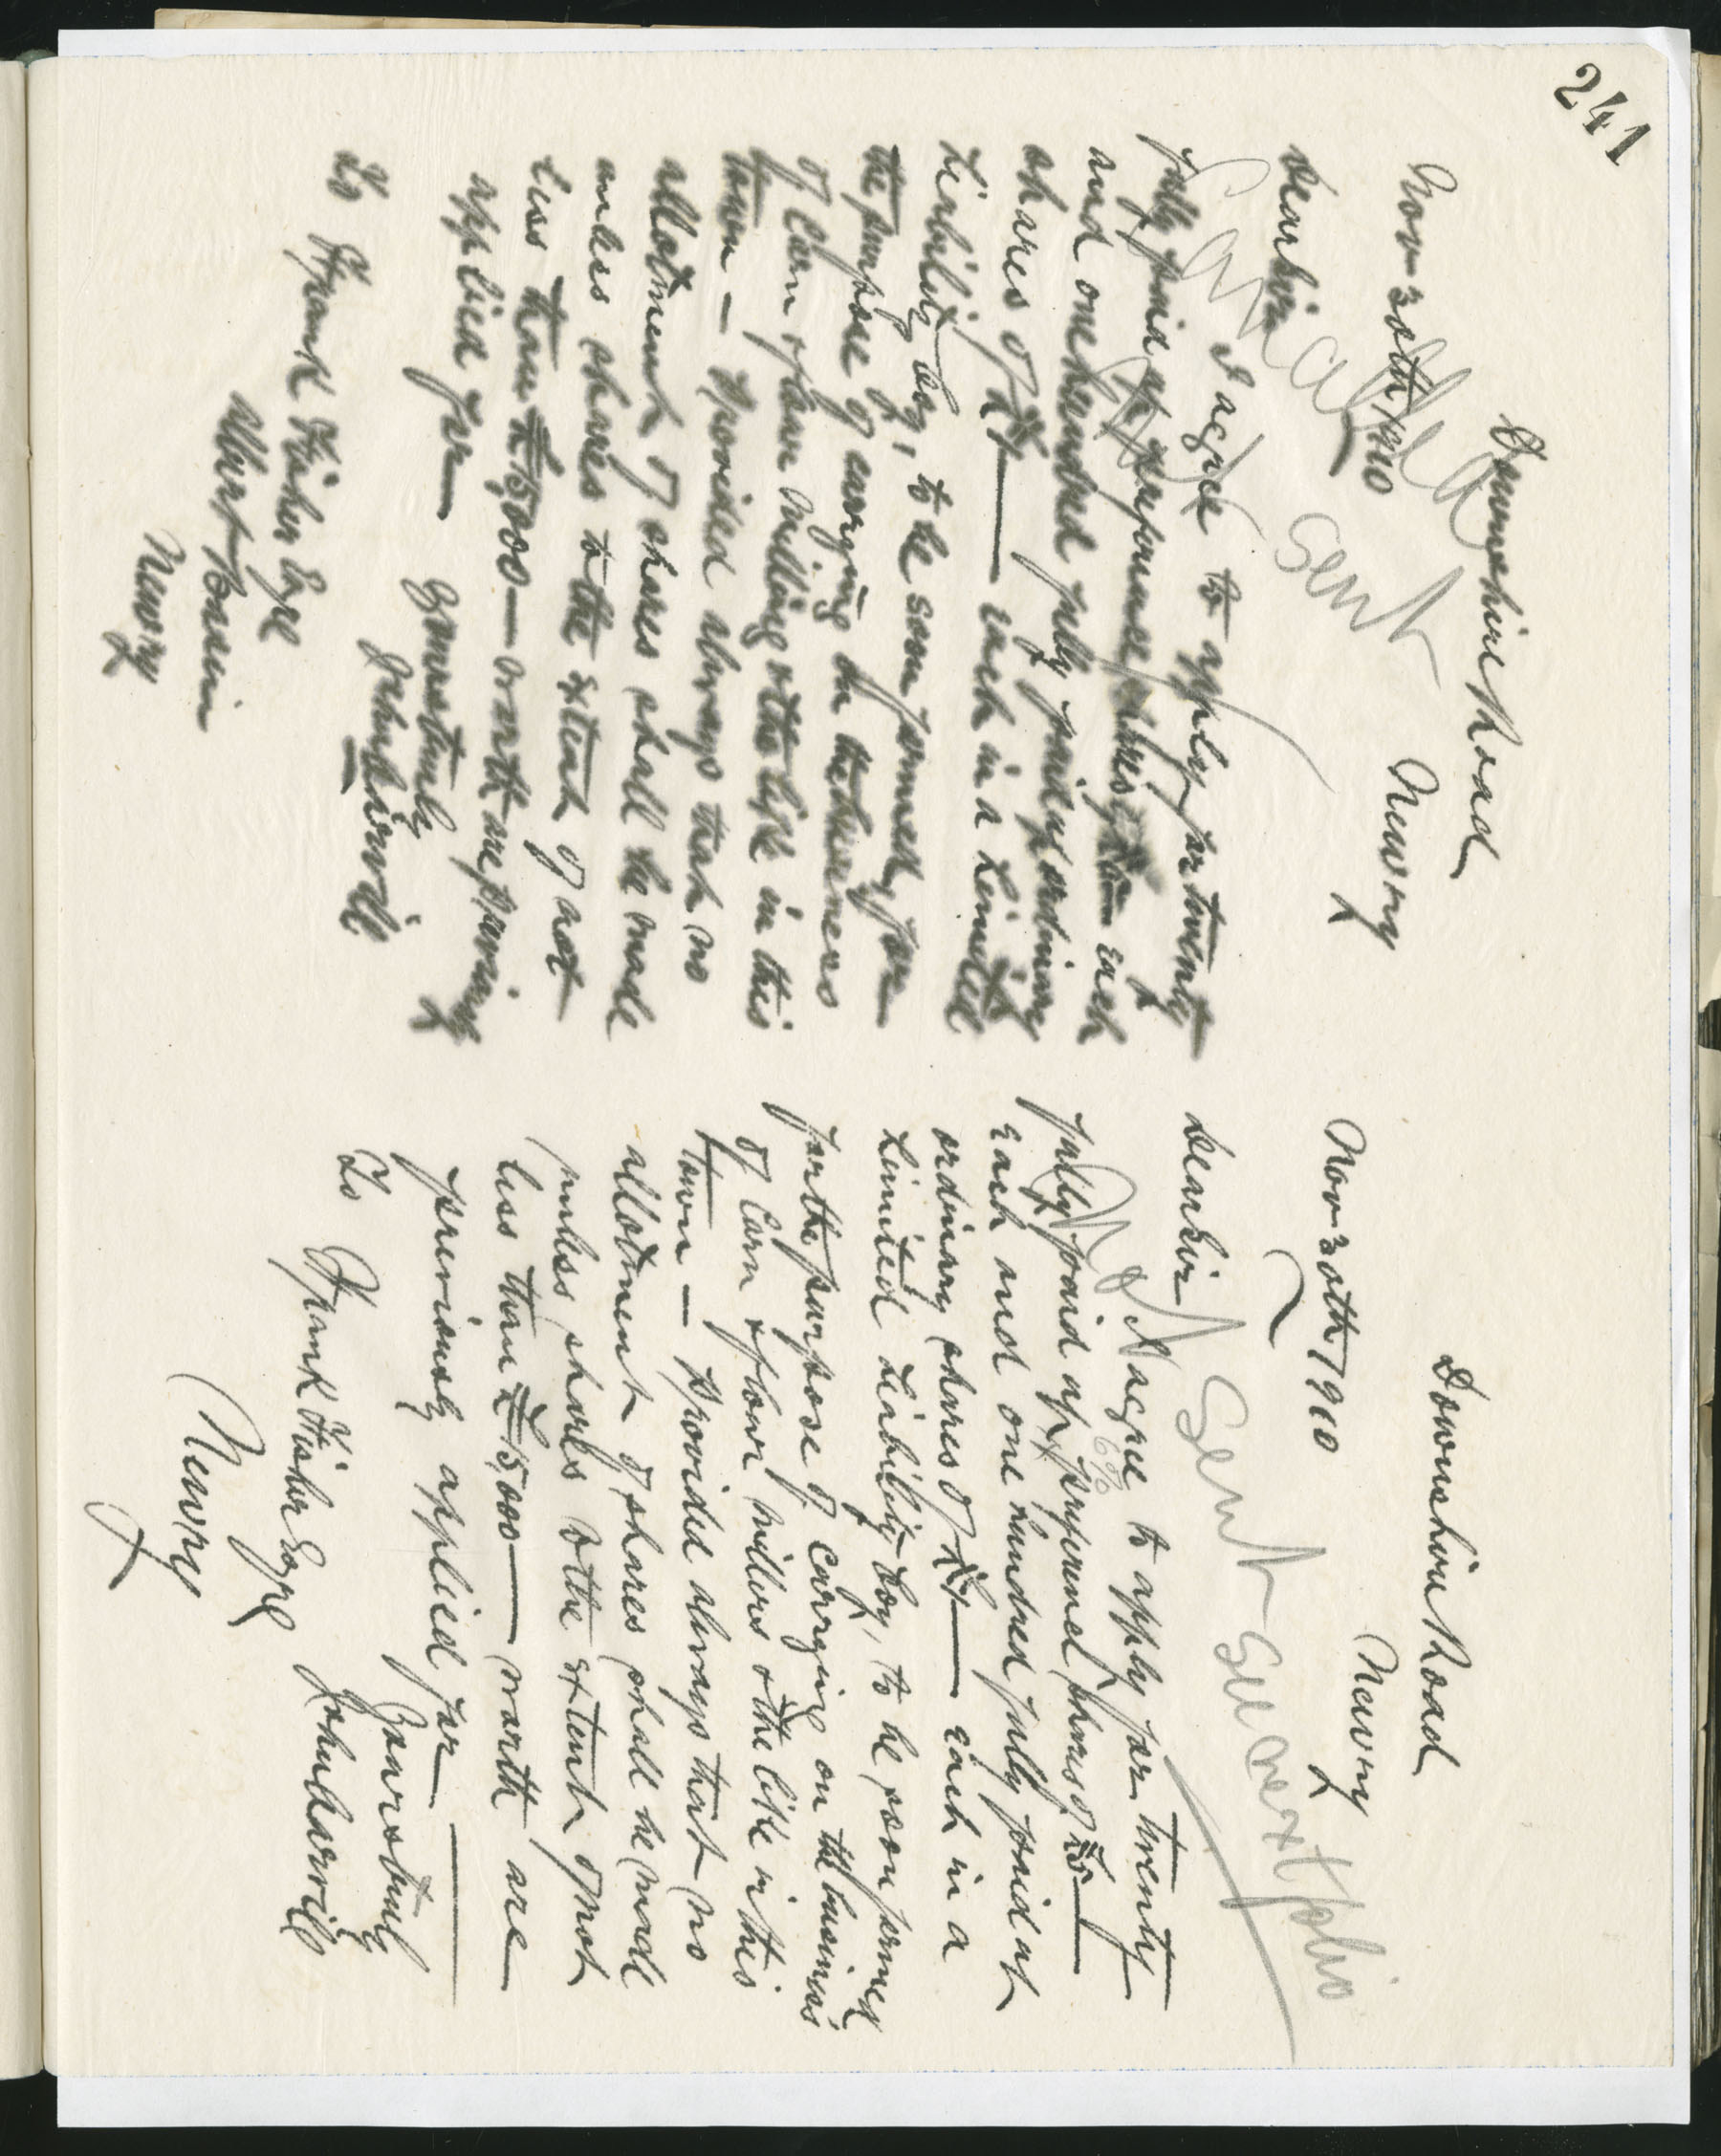 241
Downshire Road
Newry
Nov 30th 1910
Cancelled
Sent
Dear Sir
I agree to apply for twenty
fully paid up preference shares of each
and one hundred fully paid up ordinary
shares of £1 — each in a Limited
Liability Coy, to be soon formed, for
the purpose of carrying on the business
of Corn & flour milling & the like in this
town — Provided always that no
allotment of shares shall be made
unless shares to the extent of not
less than £15000 — worth are previously
applied for — Yours truly
To Frank Fisher Esqre
Albert Basin
Newry
Downshire Road
Newry
Nov 30th 1910
Sent See next folio
Dear Sir
I agree to apply for twenty
6%
fully paid up x preference shares of £5 —
each and one hundred fully paid up
ordinary shares of £1 — each in a
Limited Liability Coy, to be soon formed
for the purpose of carrying on the business
of Corn & flour millers & the like in this
town — Provided always that no
allotment of shares shall be made
unless shares to the extent of not
less than £15,000 — worth are
previously applied for —
Yours truly
To Frank Fisher Esqre
Newry